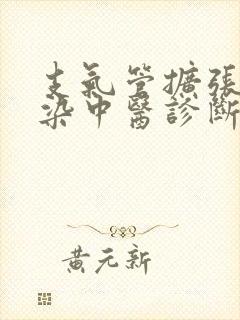 支氣管擴張
染中醫診斷
黃元新